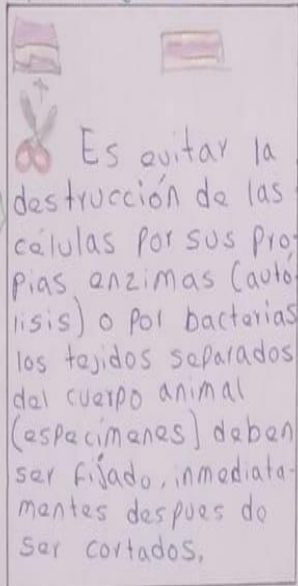 Es evitar la
destrucción de las
células por sus pro-
pias enzimas (autó-
lisis) o por bacterias
los tejidos separados
del cuerpo animal
(especímenes) deben
ser fijado, inmediata-
mentes despues de
ser cortados,